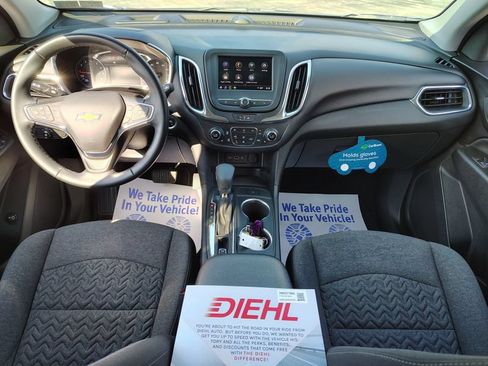 CarBravo
Holds gloves
We Take Pride
In Your Vehicle!
We Take Pride
In Your Vehicle!
DIEHL
YOU'RE ABOUT TO HIT THE ROAD IN YOUR RIDE FROM
DIEHL AUTO. BUT BEFORE YOU DO, WE WANTED TO
GET YOU UP TO SPEED WITH THE VEHICLE HIS
TORY AND ALL THE PERKS, BENEFITS,
AND DISCOUNTS THAT COME FREE
WITH THE DIEHL
DIFFERENCE!